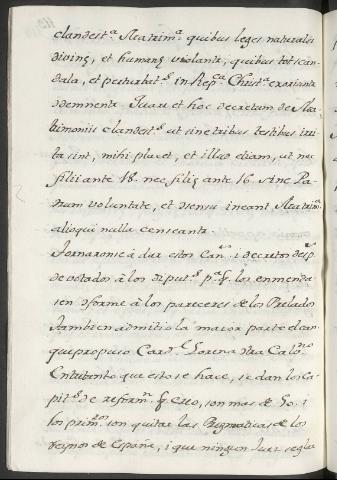 clandest.ª Matrim.ª quibus leges naturales
diving, et humang violantr, quibus tot scan-
dala, et perturbat.s in Rep.ca Christ.ª exoriantr
et dementa
et hoc decretum de Ma-
trimoniis clandest.s ut sine tribus testibus irri-
ta sint, mihi placet, et illud etiam, ut nec
filii ante 18. nec filiȩ ante 16. sine Pa-
rum voluntate, et assensu ineant Matrim.ª
alioqui nulla censeantr.
Tornaronse à dar estos Can.s i decretos desp.s
de votados à los diput.s p.ª q. los enmenda-
sen conforme à los pareceres de los Prelados
tambien admitio la maior parte el an-
que propuso Card.l Lorena contra Calv.no
Entretanto que esto se hace, se dan los Ca-
pit.s de reform.n q. creo, son mas de 40. i
los prim.ros son quitar las Pragmaticas de los
reynos de España, i que ningun Juez seglar